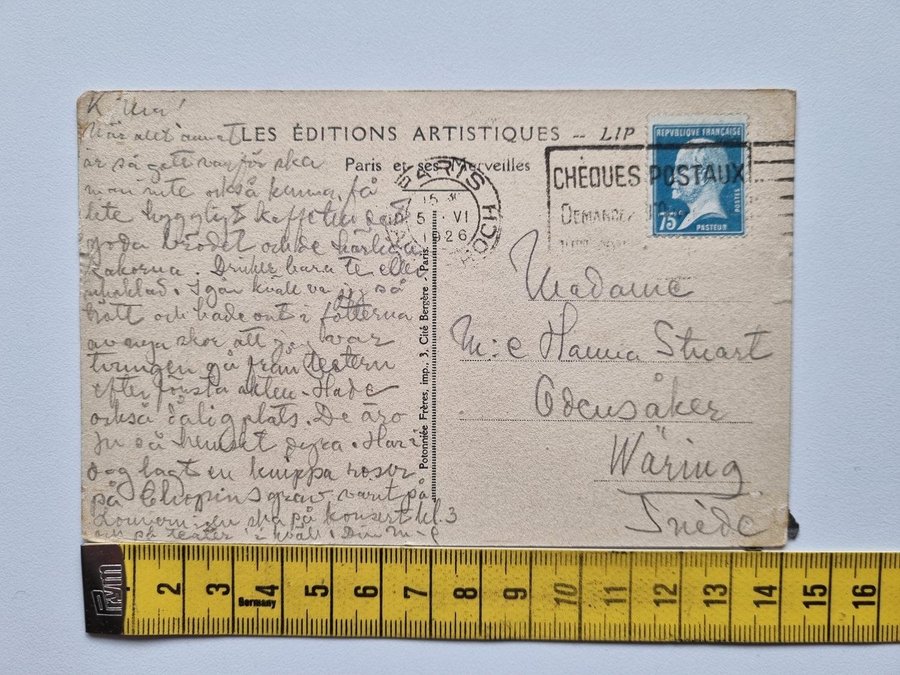 K
När allt annat
är så gott varför ska
man inte också kunna få
lite hyggligt kaffe
goda brödet och de härliga
kakorna. Dricker bara te eller
choklad. I går kväll var jag så
trött och hade ont i fötterna
av nya skor att jag var
tvungen gå från teatern
efter första akten. Hade
också dålig plats. De äro
ju så hemskt dyra. Har i
dag lagt en knippa rosor
på Chopins grav varit på
Louvern ska på konsert kl. 3
på teater i kväll. Din
LES ÉDITIONS ARTISTIQUES -- LIP
Paris et ses Merveilles
PARIS
HOCHE
15
5 VI
1926
CHÈQUES POSTAUX
DEMANDEZ
RÉPUBLIQUE FRANÇAISE
POSTES
75
PASTEUR
Potonniée Frères, imp., 3, Cité Bergère - Paris.
Madame
M:e Hanna Stuart
Odensåker
Wäring
Suède
2 3 4 5 6 7 8 9 10 11 12 13 14 15 16
Germany